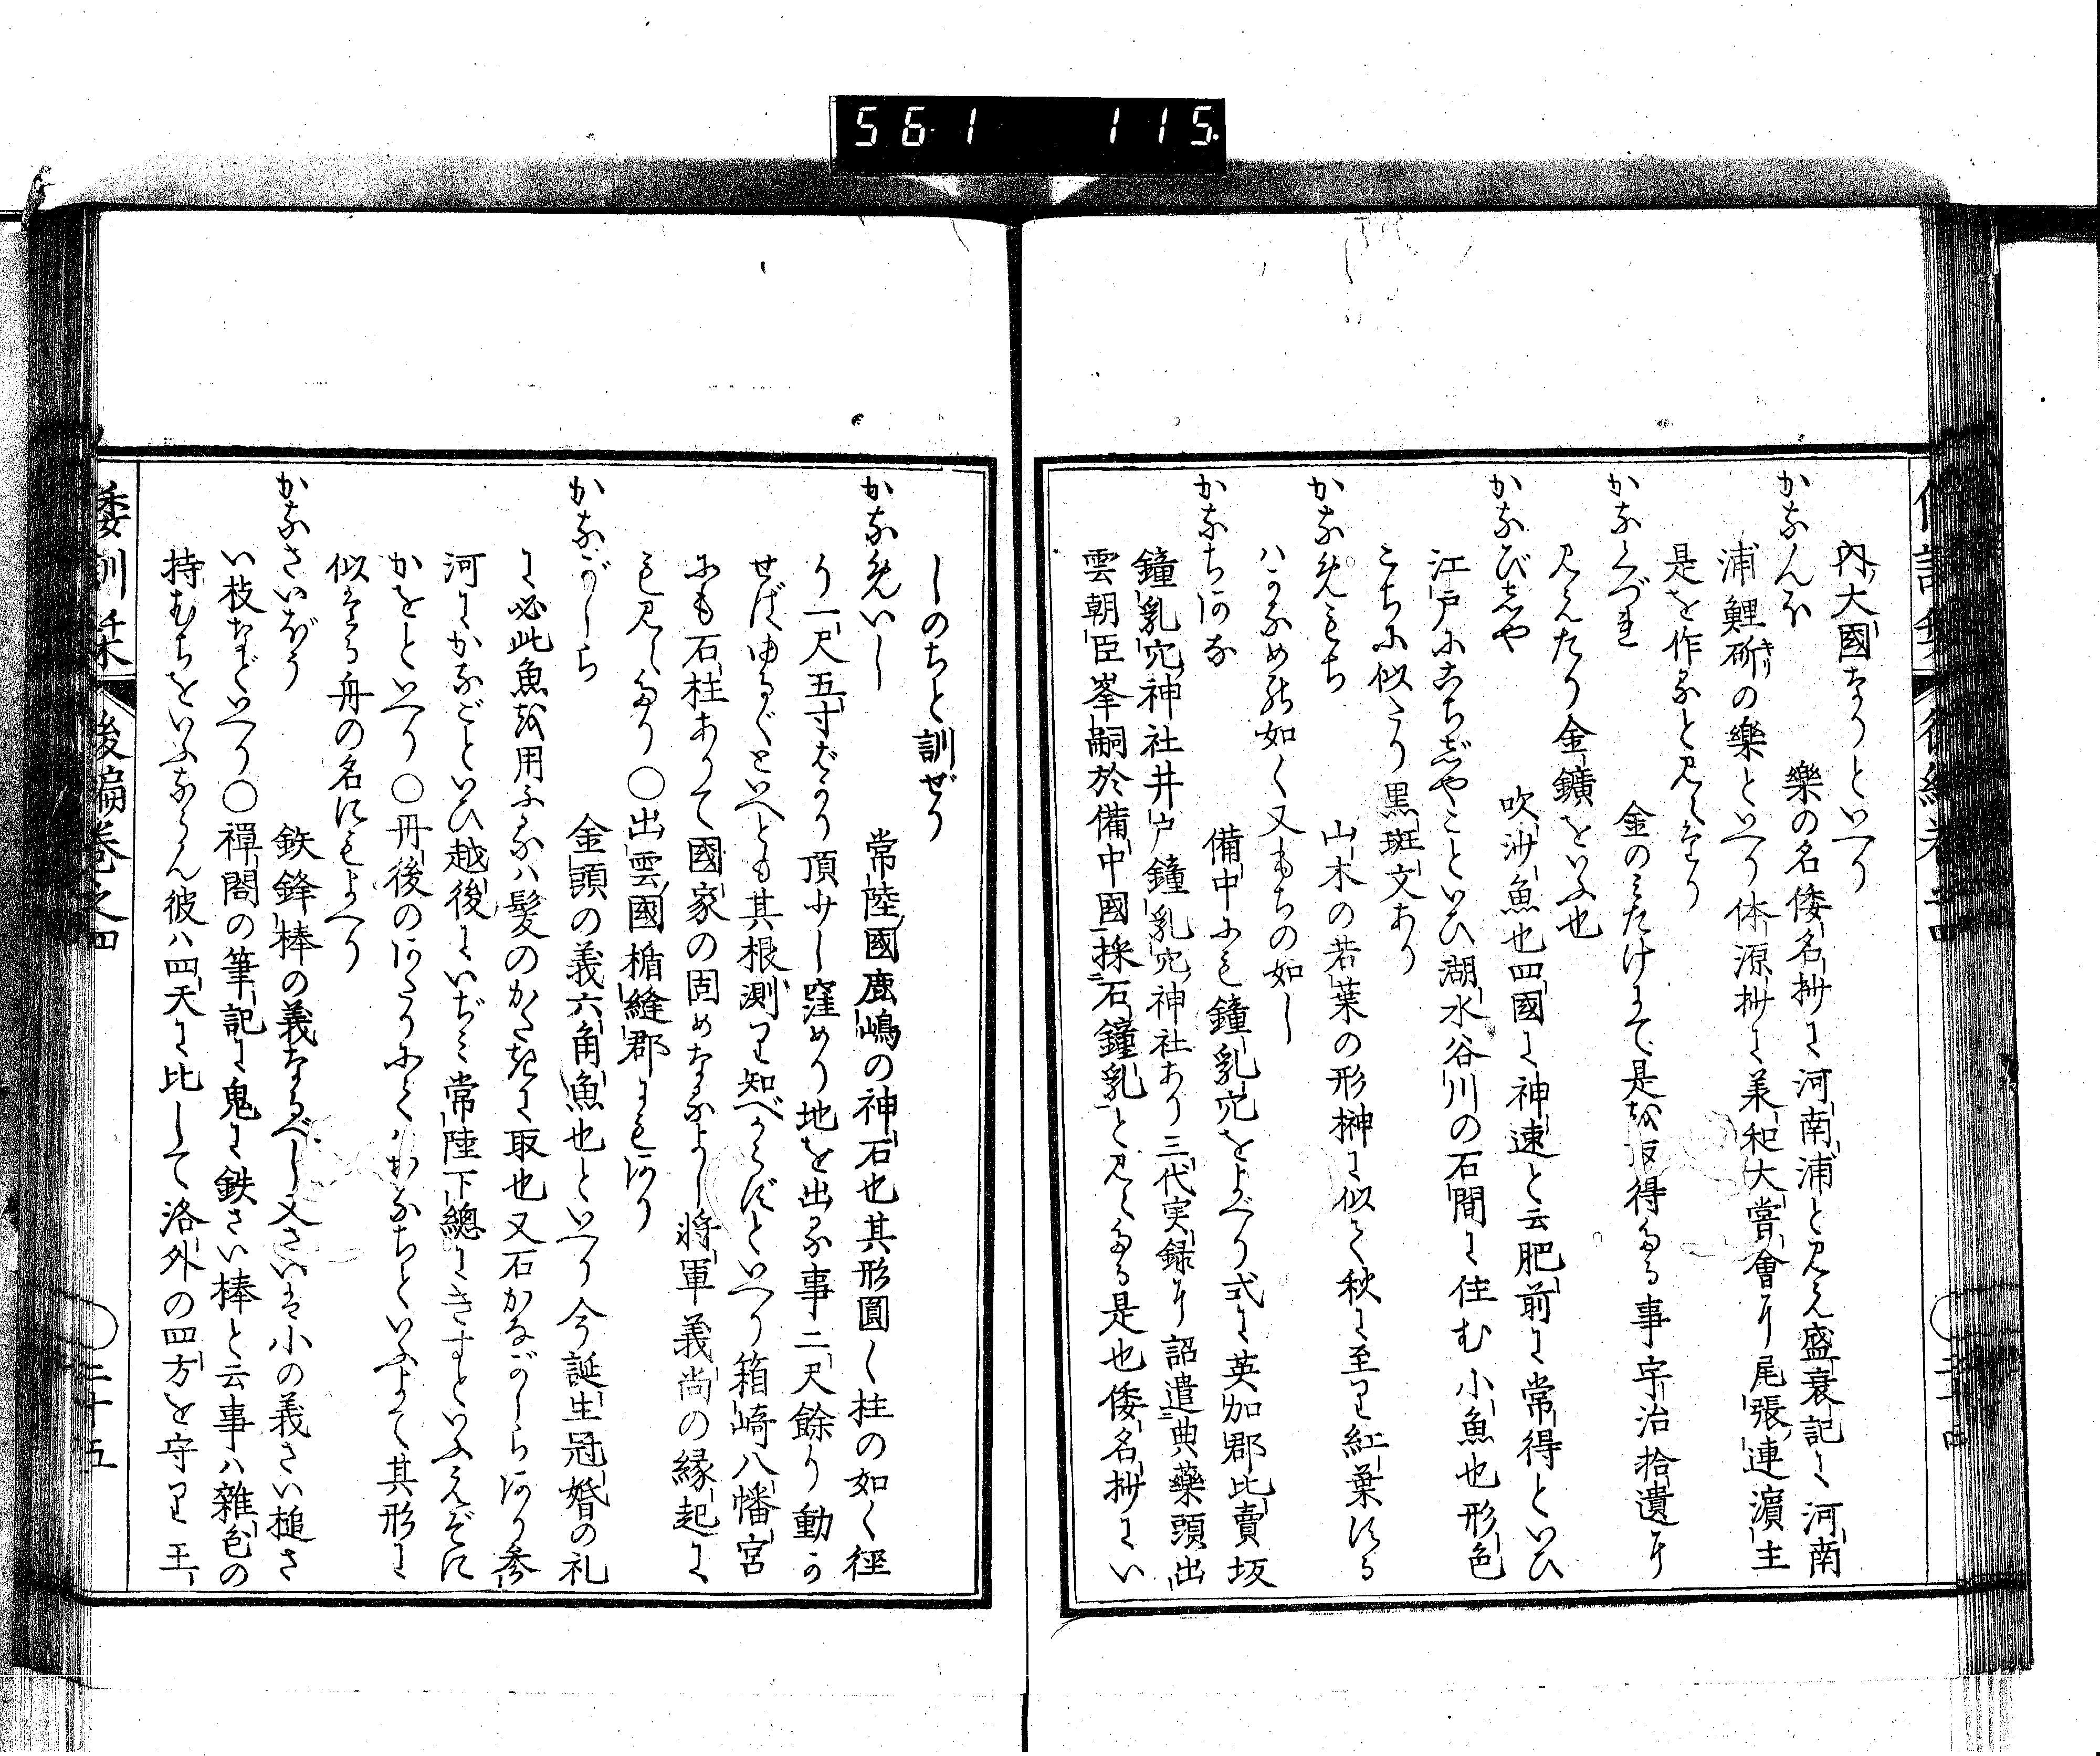 561 115
内大國なりといへり
かなんほ 樂の名倭名抄に河南浦と見え盛衰記に河南
浦鯉斫の樂といへり体源抄に美和大嘗會に尾張連濵主
是を作ると見えたり
かなくづれ 金のみたけにて是を取得たる事宇治拾遺に
見えたり金鑛をいふ也
かなびしや 吹沙魚也四國に神速と云肥前に常得といひ
江戸にあちぢやこといひ湖水谷川の石間に住む小魚也形色
こちに似たり黒斑文あり
かなめもち 山木の若葉の形榊に似て秋に至り紅葉する
ハかなめの如く又もちの如し
かなちあな 備中にも鐘乳穴をよべり式に英加郡比賣坂
鐘乳穴神社井戸鐘乳穴神社あり三代実録に詔遣典藥頭出
雲朝臣峯嗣於備中國採石鐘乳と見えたる是也倭名抄にい
しのちと訓ぜり
かなめいし 常陸國鹿嶋の神石也其形圓く柱の如く徑
り一尺五寸ばかり頂少し窪めり地を出る事二尺餘り動か
せばゆるぐといへとも其根測り知べからずといへり箱崎八幡宮
にも石柱ありて國家の固めなるよし将軍義尚の縁起に
も見えたり○出雲國楯縫郡にもあり
かながしら 金頭の義六角魚也といへり今誕生冠婚の礼
に必此魚を用ふるハ髪のかたきに取也又石かながしらあり参
河にかなごといひ越後にいぢミ常陸下總にきすといふえぞに
かをとといへり○丹後のあたりにてハかなちといふよて其形に
似たる舟の名にもよへり
かなさいぼう 鉄鋒棒の義なるべし又さいは小の義さい槌さ
い枝などいへり○禪閤の筆記に鬼に鉄さい棒と云事ハ雜色の
持むちをいふならん彼ハ四天に比して洛外の四方を守り王
倭訓栞 後編巻之四 二十五